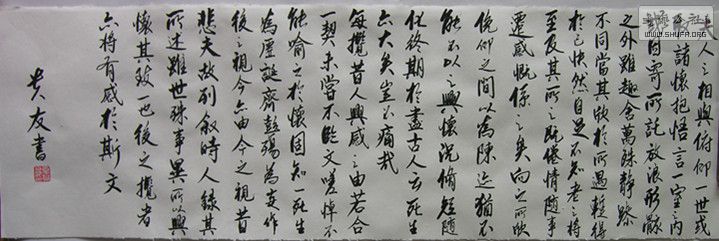 夫人之相與俯仰一世或
取諸懷抱悟言一室之內
或因寄所託放浪形骸
之外雖趣舍萬殊靜躁
不同當其欣於所遇暫得
於己快然自足不知老之將
至及其所之既倦情隨事
遷感慨係之矣向之所欣
俛仰之間以為陳迹猶不
能不以之興懷況脩短隨
化終期於盡古人云死生
亦大矣豈不痛哉
每攬昔人興感之由若合
一契未嘗不臨文嗟悼不
能喻之於懷固知一死生
為虛誕齊彭殤為妄作
後之視今亦由今之視昔
悲夫故列敘時人錄其
所述雖世殊事異所以興
懷其致一也後之攬者
亦將有感於斯文
友書
WWW.SHUFA.ORG